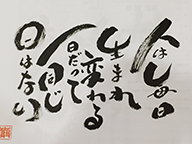 人は毎日
生まれ
変わる
日だがて
人同じ
日はない